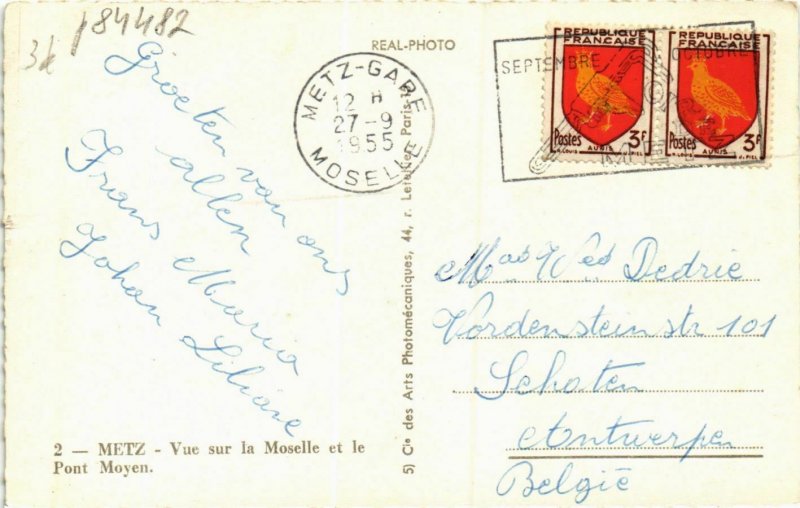 184482
3k
REAL-PHOTO
Groeten van ons
allen
Frans Maria
Johan Liliane
2 — METZ - Vue sur la Moselle et le
Pont Moyen.
5) Cie des Arts Photomécaniques, 44, r. Paris-
METZ-GARE
12 H
27-9
1955
MOSELLE
SEPTEMBRE OCTOBRE
REPUBLIQUE
FRANÇAISE
Postes 3F
AUNIS
REPUBLIQUE
FRANÇAISE
Postes 3F
AUNIS
J. PIEL
Wed Dedrie
Vordensteinstr 101
Schoten
Antwerpen
België